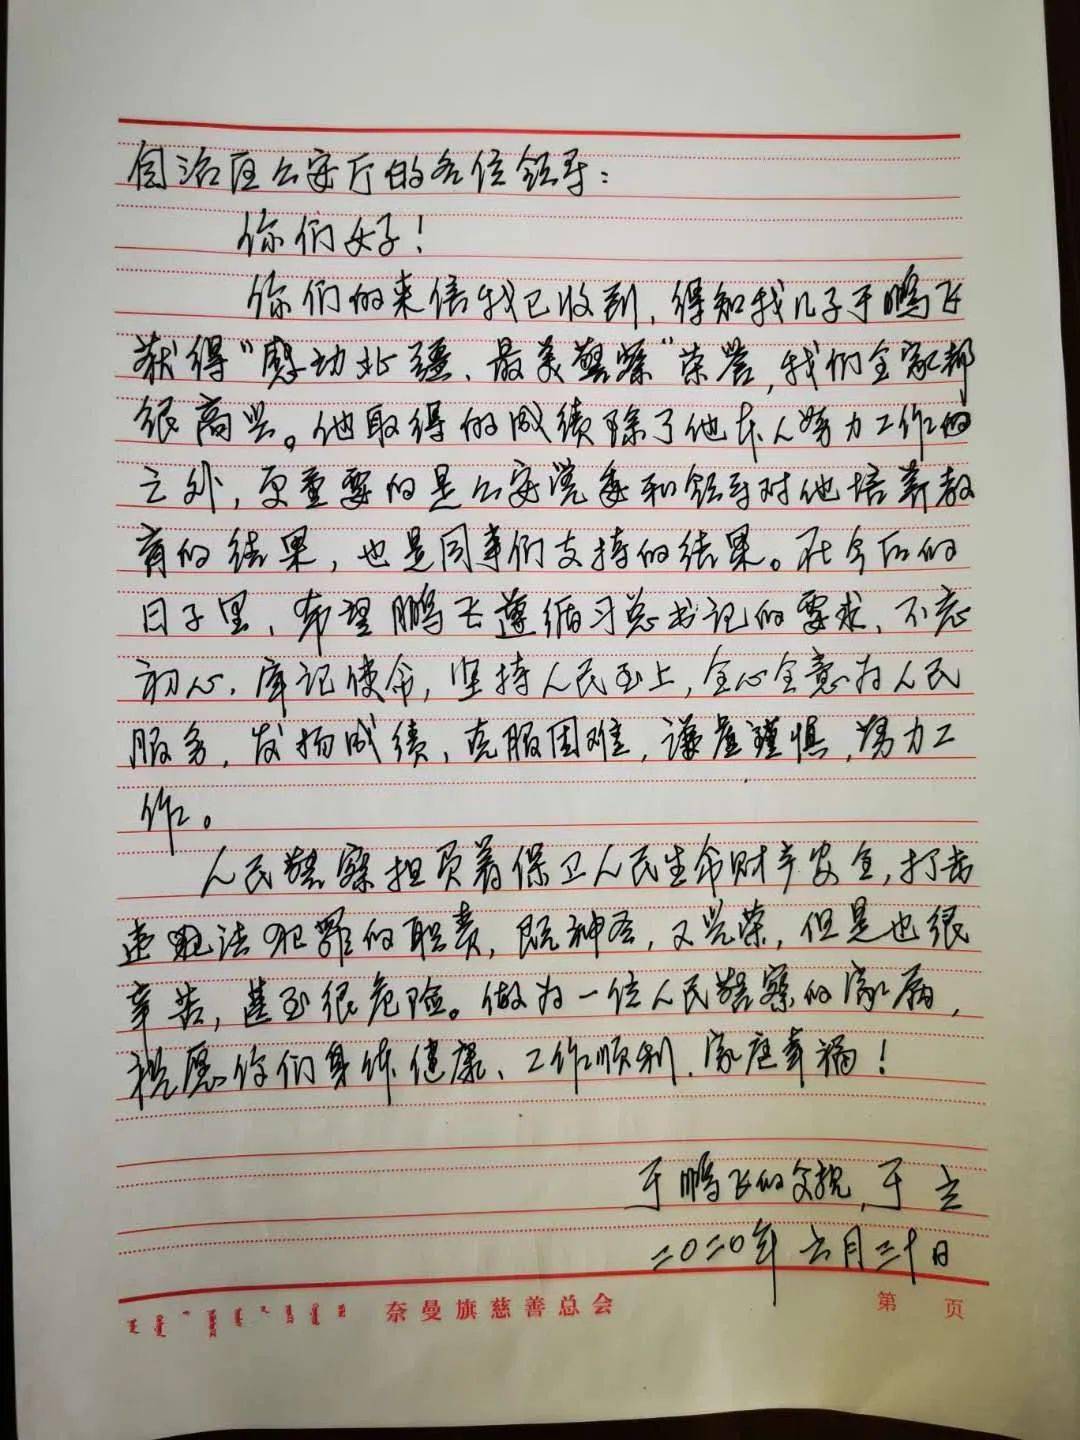 自治区公安厅的各位领导：
你们好！
你们的来信我已收到，得知我儿子于鹏飞
获得“感动北疆、最美警察”荣誉，我们全家都
很高兴。他取得的成绩除了他本人努力工作的
之外，更重要的是公安党委和领导对他培养教
育的结果，也是同事们支持的结果。在今后的
日子里，希望鹏飞遵循习总书记的要求，不忘
初心，牢记使命，坚持人民至上，全心全意为人民
服务，发扬成绩，克服困难，谦虚谨慎，努力工
作。
人民警察担负着保卫人民生命财产安全，打击
违法犯罪的职责，既神圣，又光荣，但是也很
辛苦，甚至很危险。做为一位人民警察的家属，
祝愿你们身体健康、工作顺利、家庭幸福！
于鹏飞的父亲，于立
二〇二〇年六月三十日
奈曼旗慈善总会
第 页